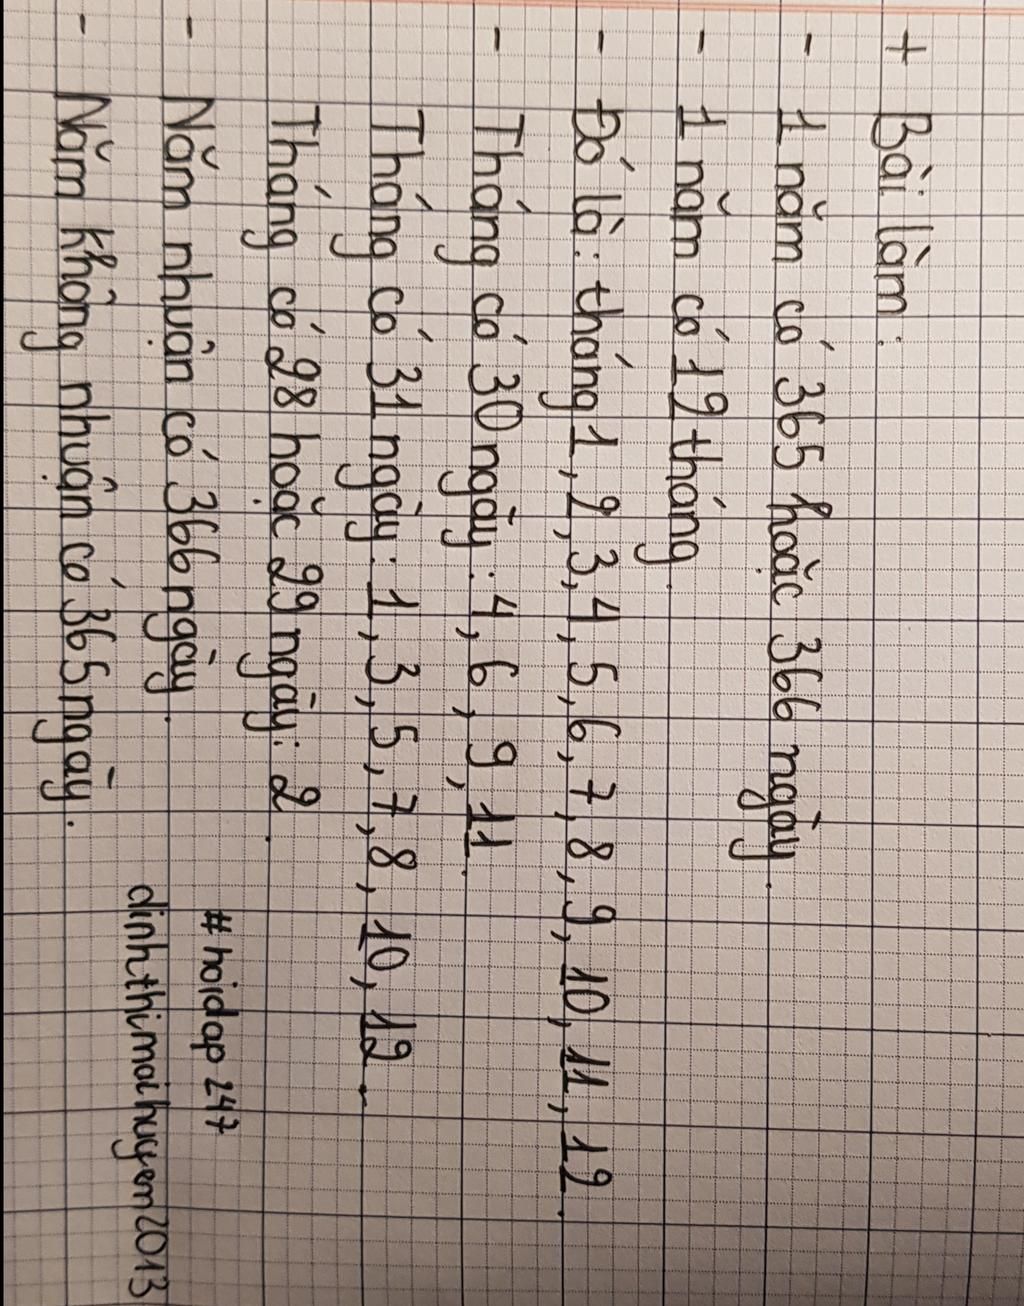 + Bài làm:
- 1 năm có 365 hoặc 366 ngày.
- 1 năm có 12 tháng.
- Đó là: tháng 1, 2, 3, 4, 5, 6, 7, 8, 9, 10, 11, 12.
- Tháng có 30 ngày: 4, 6, 9, 11.
Tháng có 31 ngày: 1, 3, 5, 7, 8, 10, 12.
Tháng có 28 hoặc 29 ngày: 2.
- Năm nhuận có 366 ngày.
- Năm không nhuận có 365 ngày.
#hoidap247
dinhthimaihuyen2013